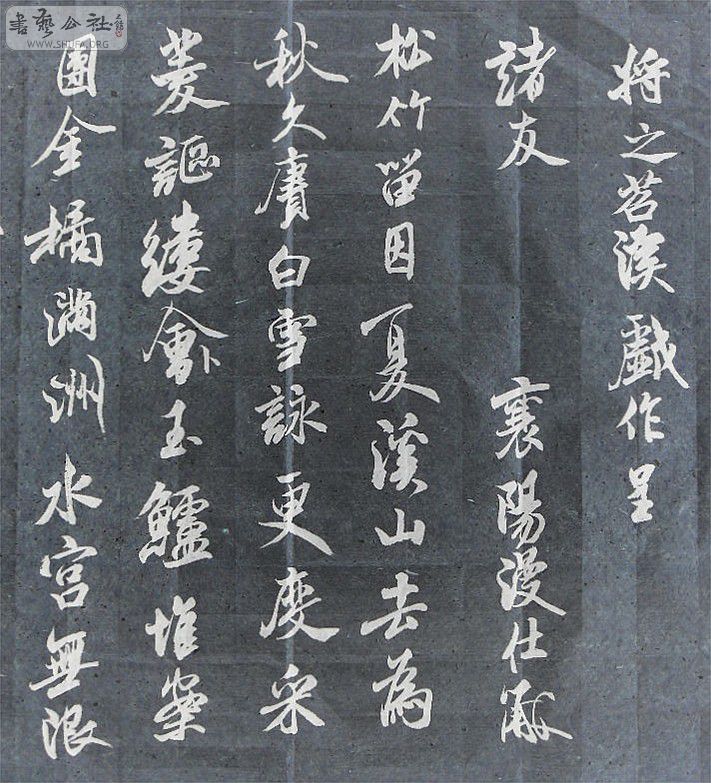 書藝公社
WWW.SHUFA.ORG
將之苕溪戲作呈
諸友 襄陽漫仕黻
松竹留因夏溪山去為
秋久賡白雪詠更度采
菱謳縷會卜玉鱸堆案
團金橘滿洲水宮無限